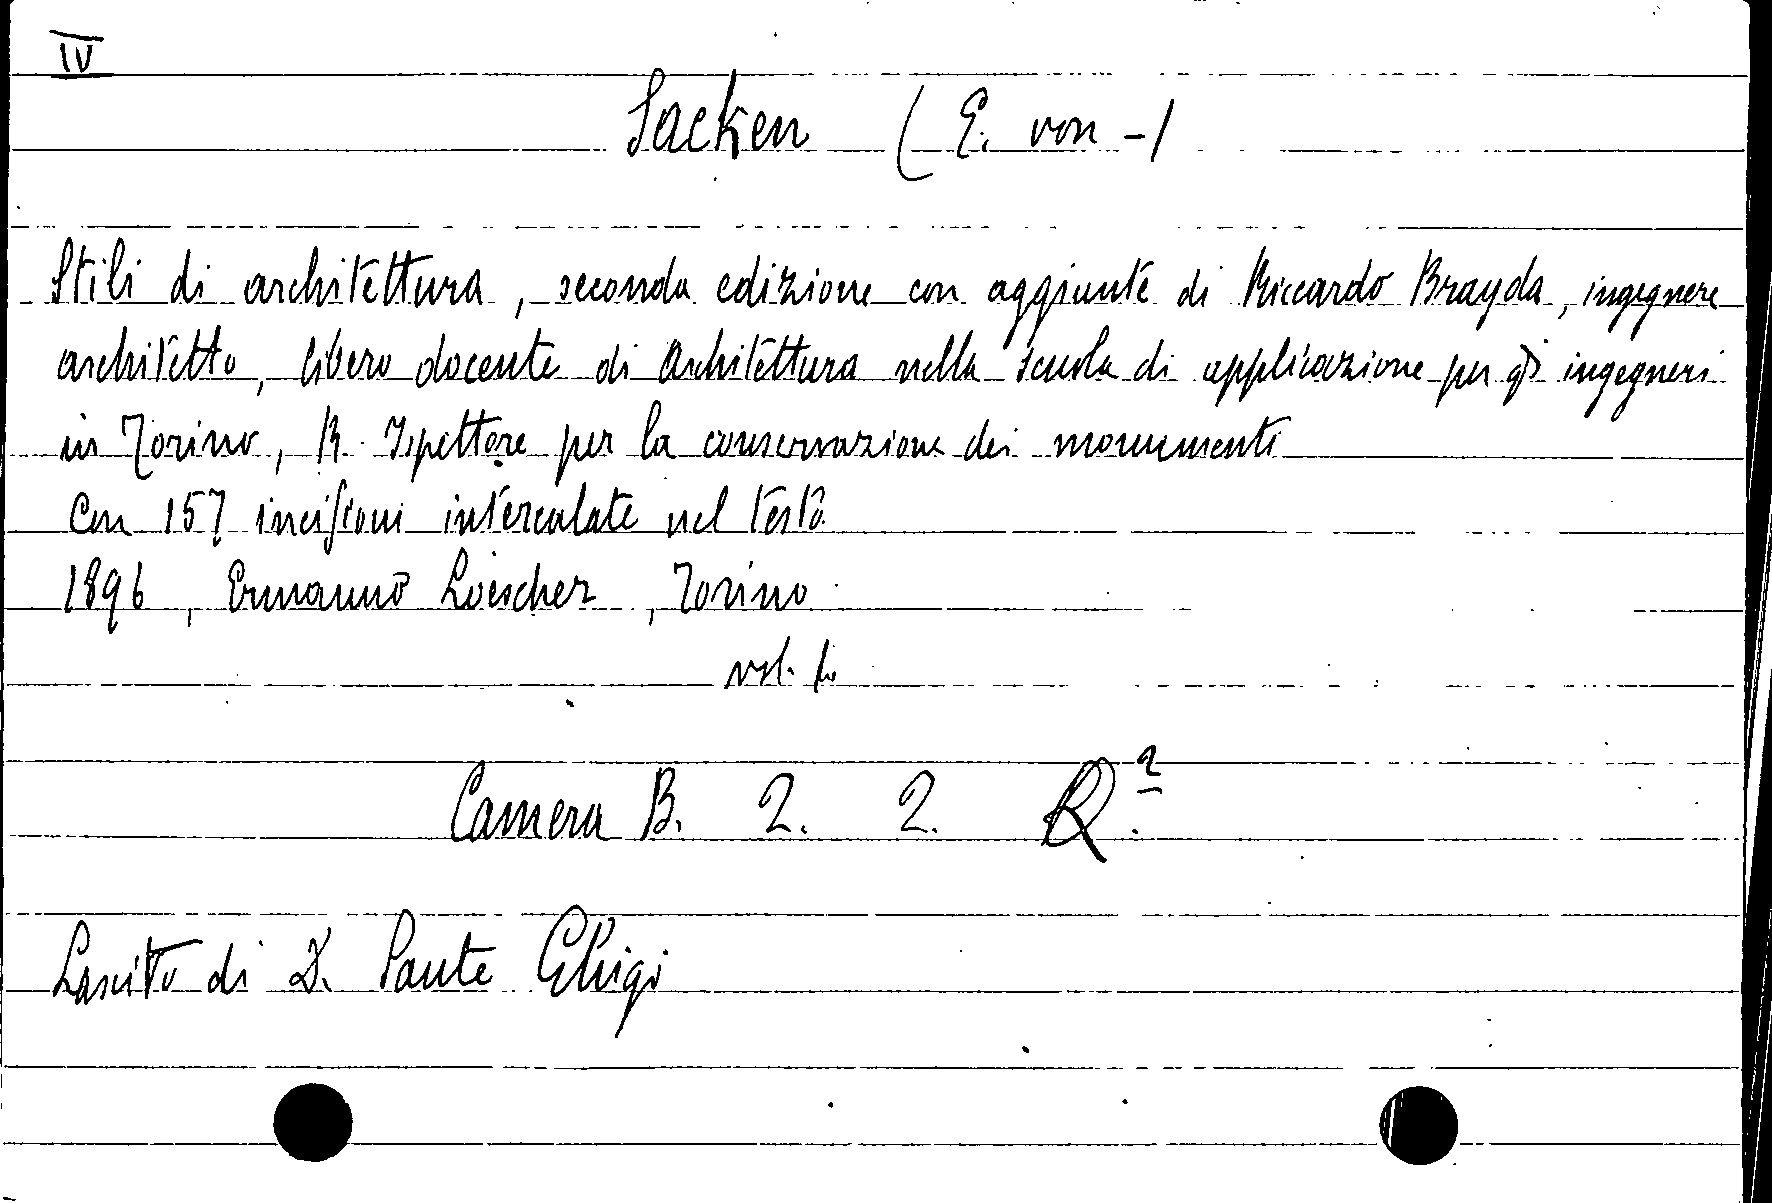 IV
Sacken (E. von -)
Stili di architettura, seconda edizione con aggiunte di Riccardo Brayda, ingegnere
architetto, libero docente di Architettura nella scuola di applicazione per gli ingegneri
in Torino, R. Ispettore per la conservazione dei monumenti
Con 157 incisioni intercalate nel testo
1896, Ermanno Loescher, Torino
vol. 1.
Camera B. 2. 2.
Lascito di D. Sante Ghigi